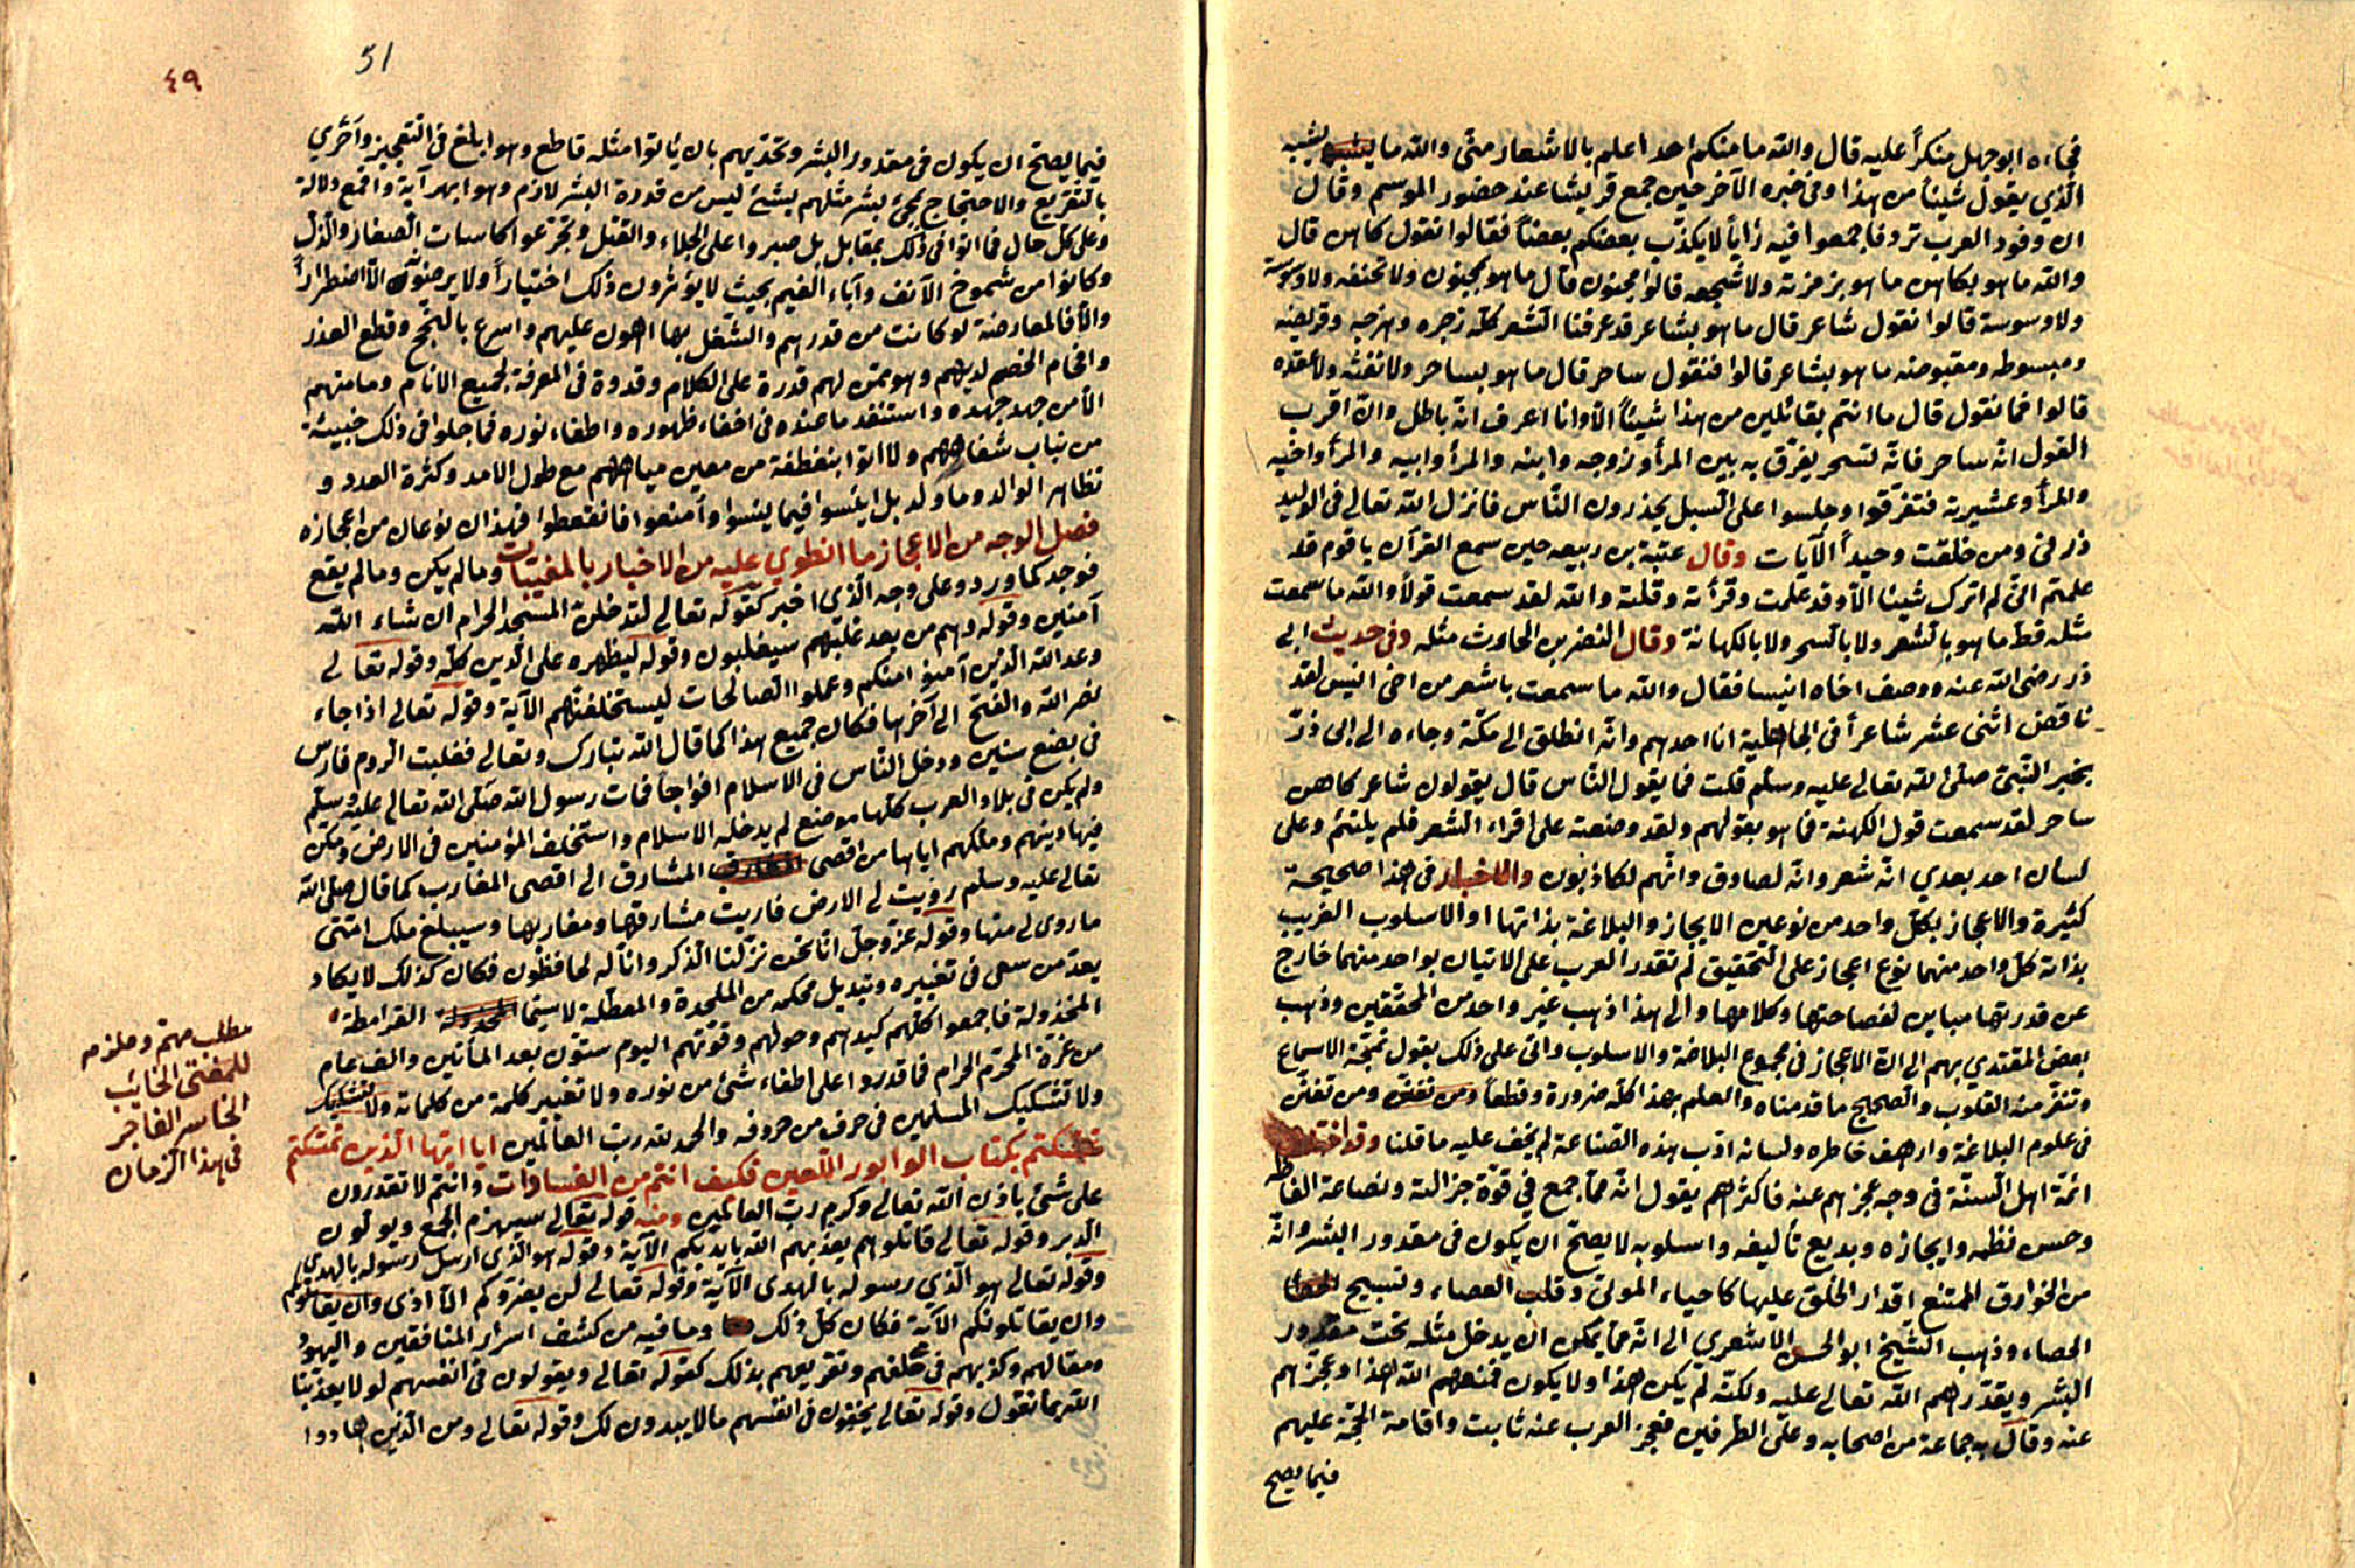 فجاءه ابو جهل منكراً عليه قال والله ما منكم احد اعلم بالاشعار منى والله ما يشبه
الّذي يقول شيئاً من هذا وفى خبره الآخر حين جمع قريشا عند حضور الموسم وقال
ان وفود العرب ترد فاجمعوا فيه رأياً لا يكذّب بعضكم بعضاً فقالوا نقول كاهن قال
والله ما هو بكاهن ما هو بزمزمته ولا سجعه قالوا مجنون قال ما هو بمجنون ولا تخنقه ولا وسوسته
ولا وسوسة قالوا نقول شاعر قال ما هو بشاعر قد عرفنا الشعر كلّه زجره وهزجه وقريضه
ومبسوطه ومقبوضه ما هو بشاعر قالوا فنقول ساحر قال ما هو بساحر ولا نفثه ولا عقده
قالوا فما نقول قال ما انتم بقائلين من هذا شيئاً الّا وانا اعرف انّه باطل وانّ اقرب
القول انّه ساحر فانّه لسحر يفرّق به بين المرأ وزوجه وابنه والمرأ وابيه والمرأ واخيه
والمرأ وعشيرته فتفرّقوا وجلسوا على السبل يحذرون النّاس فانزل الله تعالى فى الوليد
ذرنى ومن خلقت وحيداً الآيات وقال عتبة بن ربيعه حين سمع القرآن يا قوم قد
علمتم انّى لم اترك شيئا الّا وقد علمت وقرأته وقلته والله لقد سمعت قولاً والله ما سمعت
مثله قطّ ما هو بالشعر ولا بالسحر ولا بالكهانة وقال النضر بن الحارث مثله وفى حديث ابى
ذر رضى الله عنه ووصف اخاه انيسا فقال والله ما سمعت باشعر من اخى انيس لقد
ناقض اثنى عشر شاعراً فى الجاهلية انا احدهم وانّه انطلق الى مكّة وجاءه الى ابى ذرّ
بخبر النّبىّ صلّى الله تعالى عليه وسلّم قلت فما يقول النّاس قال يقولون شاعر كاهن
ساحر لقد سمعت قول الكهنة فما هو بقولهم ولقد وضعته على اقراء الشعر فلم يلتئم وعلى
لسان احد بعدي انّه شعر وانّه لصادق وانّهم لكاذبون والاخبار فى هذا صحيحة
كثيرة والاعجاز بكلّ واحد من نوعين الايجاز والبلاغة بذاتها او الاسلوب الغريب
بذاته كلّ واحد منهما نوع اعجاز على التّحقيق لم تقدر العرب على الاتيان بواحد منهما خارج
عن قدرتها مباين لفصاحتها وكلامها والى هذا ذهب غير واحد من المحقّقين وذهب
بعض المقتدي بهم الى انّ الاعجاز فى مجموع البلاغة والاسلوب واتى على ذلك بقول تمجّه الاسماع
وتنفر منه القلوب والصحيح ما قدمناه والعلم بهذا كلّه ضرورة وقطعاً ومن تفنن ومن تفنّن
فى علوم البلاغة وارهف خاطره ولسانه ادب هذه الصّناعة لم يخف عليه ما قلنا وقد اختلف
ائمّة اهل السنّة فى وجه عجزهم عنه فاكثرهم يقول انّه ممّا جمع فى قوّة جزالته ونصاعة الفاظه
وحسن نظمه وايجازه وبديع تأليفه واسلوبه لا يصحّ ان يكون فى مقدور البشر وانّه
من الخوارق الممتنع اقدار الخلق عليها كاحياء الموتى وقلب العصاء وتسبيح
الحصاء وذهب الشّيخ ابو الحسن الاشعري الى انّه ممّا يمكن ان يدخل مثله تحت مقدور
البشر ويقدّرهم الله تعالى عليه ولكنّه لم يكن هذا ولا يكون فمنعهم الله هذا وعجّزهم
عنه وقال به جماعة من اصحابه وعلى الطرفين فعجز العرب عنه ثابت واقامة الحجّة عليهم
فيما يصح
51
٤٩
فيما يصحّ ان يكون فى مقدور البشر وتحدّيهم بان يأتوا مثله قاطع وهو ابلغ فى التّعجيز واحري
بالتّقريع والاحتجاج بمجئ بشر مثلهم بشئ ليس من قدرة البشر لازم وهو ابهر آية واقمع دلالة
وعلى كلّ حال فما اتوا فى ذلك بمقابل بل صبروا على الجلاء والقتل وتجرّعوا كاسات الصغار والذلّ
وكانوا من شموخ الآنف وآباء الضيم بحيث لا يؤثرون ذلك اختياراً ولا يرضونه الّا اضطراراً
والّا فالمعارضة لو كانت من قدرهم والشغل بها اهون عليهم واسرع بالنجح وقطع العذر
وافحام الخصم لديهم وهو ممّن لهم قدرة على الكلام وقدوة فى المعرفة لجميع الانام وما منهم
الّا من جهد جهده واستنفد ما عنده فى اخفاء ظهوره واطفاء نوره فما جلوا فى ذلك خبيئة
من نبات شفاههم ولا اتوا بنطفة من معين مياههم مع طول الامد وكثرة العدد و
تظاهر الوالد وما ولد بل ابلسوا فيما ينبسوا وأمنعوا فانقطعوا فهذان نوعان من اعجازه
فصل الوجه من الاعجاز ما انطوي عليه من الاخبار بالمغيبات وما لم يكن وما لم يقع
فوجد كما ورد وعلى وجه الّذي اخبر كقوله تعالى لتدخلنّ المسجد الحرام ان شاء الله
آمنين وقوله وهم من بعد غلبهم سيغلبون وقوله ليظهره على الدّين كلّه وقوله تعالى
وعد الله الّذين آمنوا منكم وعملوا الصّالحات ليستخلفنّهم الآية وقوله تعالى اذا جاء
نصر الله والفتح الى آخرها فكان جميع هذا كما قال الله تبارك وتعالى فغلبت الرّوم فارس
فى بضع سنين ودخل النّاس فى الاسلام افواجاً فمات رسول الله صلّى الله تعالى عليه وسلّم
ولم يكن فى بلاد العرب كلّها موضع لم يدخله الاسلام واستخلف المؤمنين فى الارض ومكّن
فيها دينهم وملكهم اياها من اقصى المشارق الى اقصى المغارب كما قال صلّى الله
تعالى عليه وسلم رويت لى الارض فاريت مشارقها ومغاربها وسيبلغ ملك امّتى
ما روى لى منها وقوله عزّ وجلّ انّا نحن نزّلنا الذّكر وانّا له لحافظون فكان كذلك لا يكاد
يعدّ من سعى فى تغييره وتبديل محكمه من الملحدة والمعطّلة لاسيّما القرامطة
المخذولة فاجمعوا كلّهم كيدهم وحولهم وقوّتهم اليوم ستّون بعد المأتين والف عام
من غرّة المحرّم الحرام فما قدروا على اطفاء شئ من نوره ولا تغيير كلمة من كلماته
ولا تشكيك المسلمين فى حرف من حروفه والحمد لله ربّ العالمين ايا ايّها الّذين تمسّكتم
بكتاب الوابور اللّعين فكيف انتم من الفسادات وانتم لا تقدرون
على شئ باذن الله تعالى وكرم ربّ العالمين ومنه قوله تعالى سيهزم الجمع ويولّون
الدبر وقوله تعالى قاتلوهم يعذبهم الله بايديكم الآية وقوله هو الذى ارسل رسوله بالهدي
وقوله تعالى هو الّذي رسوله بالهدى الآية وقوله تعالى لن يضرّوكم الّا اذى وان يقاتلوكم
وان يقاتلونكم الآية فكان كلّ ذلك وما فيه من كشف اسرار المنافقين واليهود
ومقالهم وكذبهم فى حلفهم وتقريعهم بذلك كقوله تعالى ويقولون فى انفسهم لولا يعذّبنا
الله بما نقول وقوله تعالى يخفون فى انفسهم ما لا يبدون لك وقوله تعالى ومن الّذين هادوا
مطلب مهمّ وملزم
للمفتى الخائب
الخاسر الفاجر
فى هذا الزمان